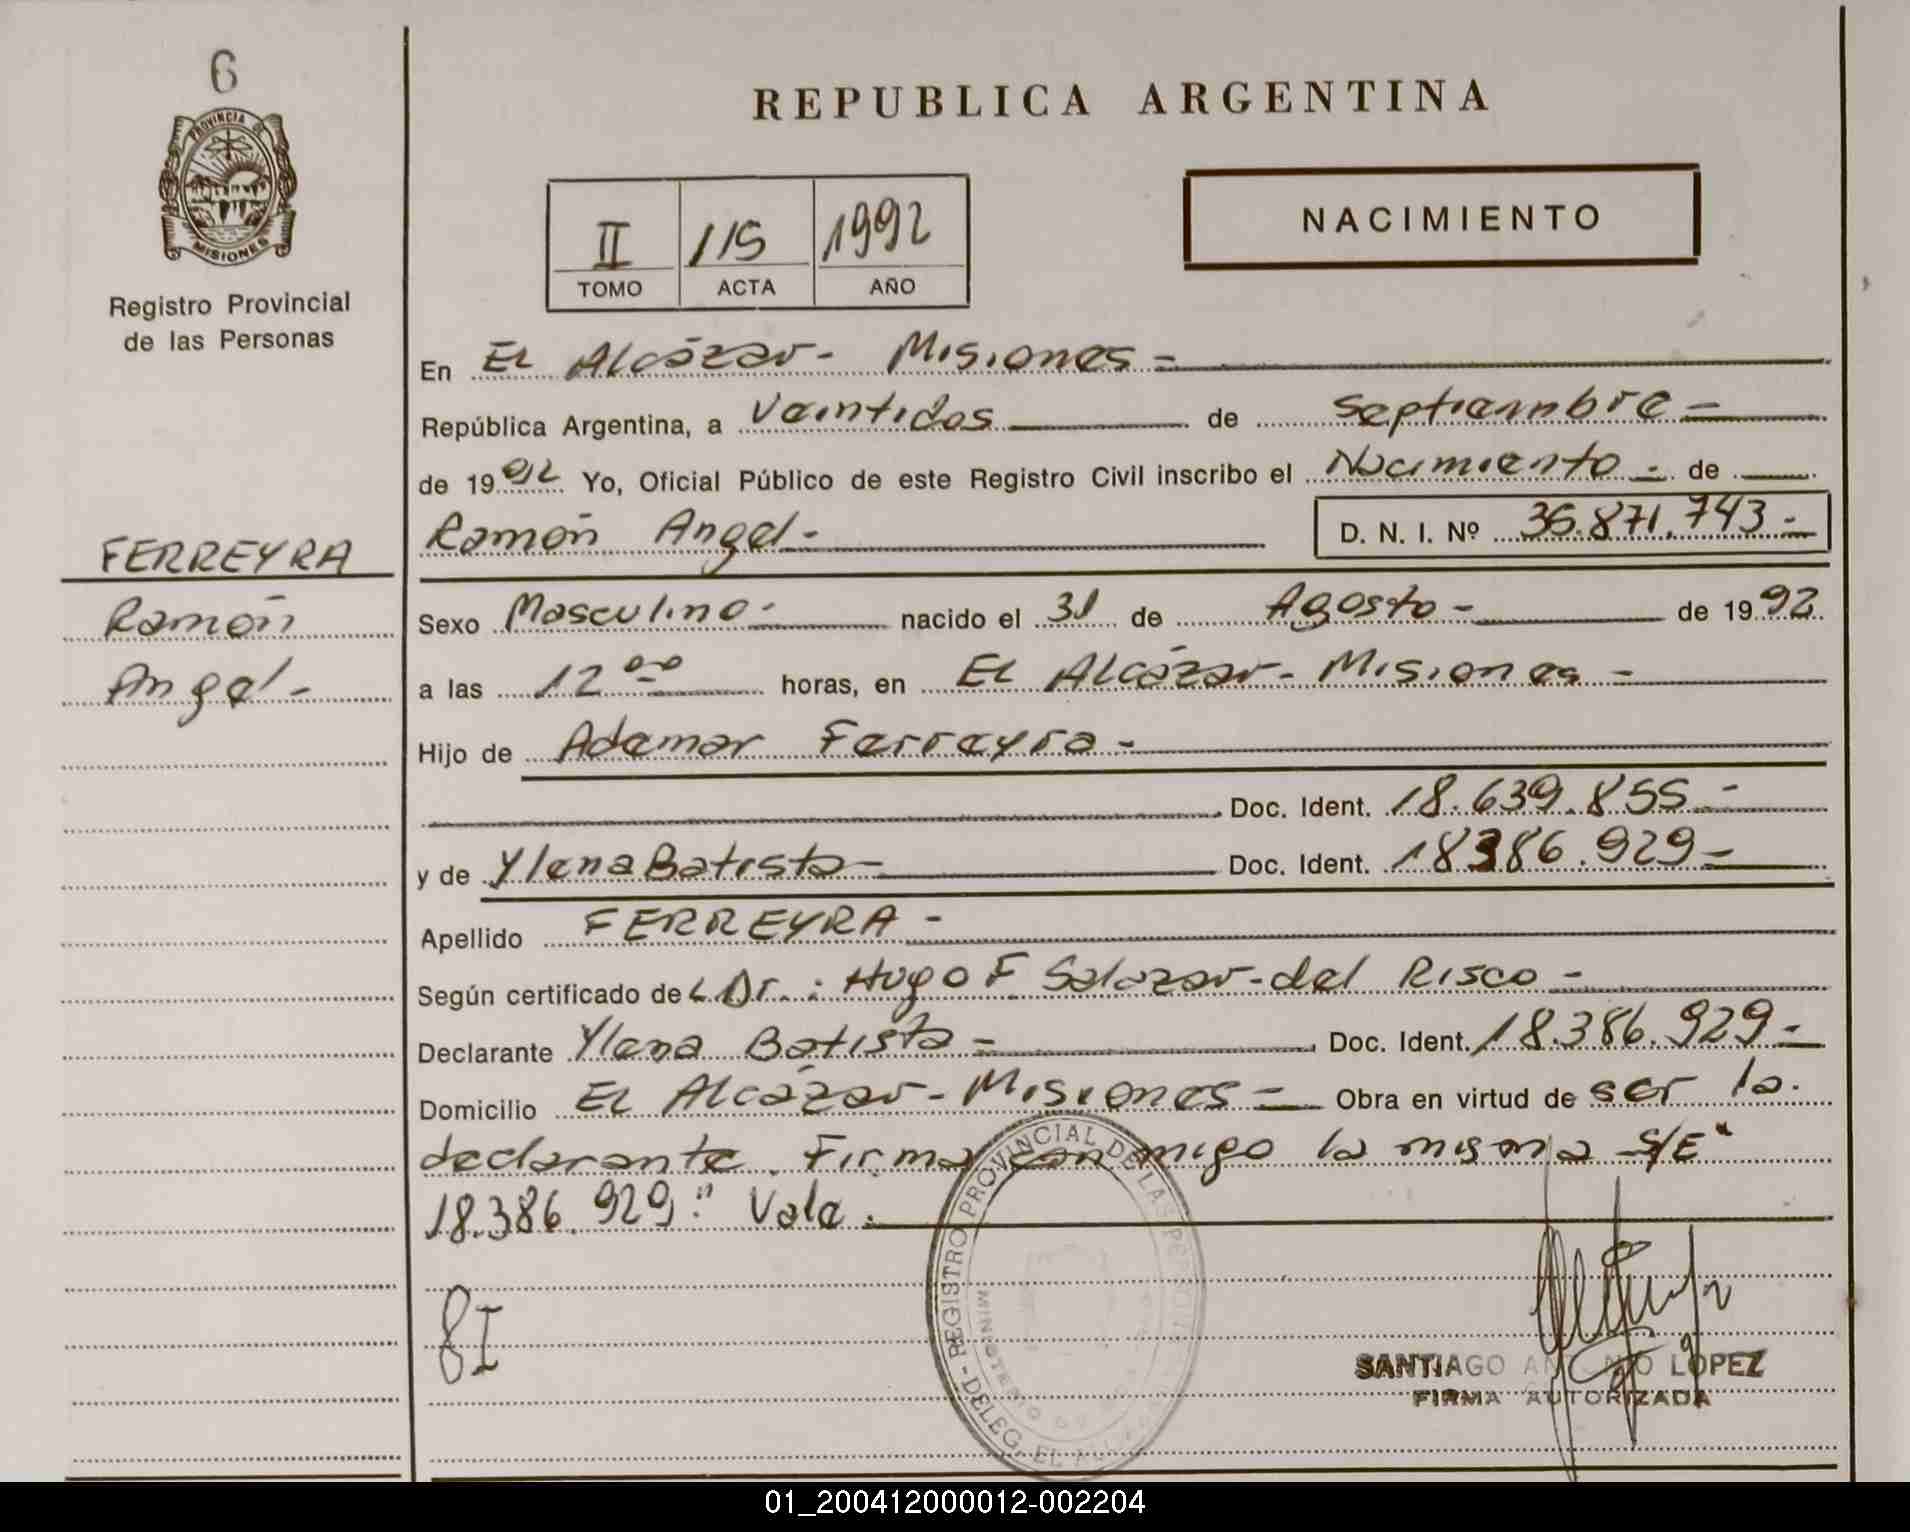 6
PROVINCIA DE
MISIONES
Registro Provincial
de las Personas
FERREYRA
Ramón
Angel-
REPUBLICA ARGENTINA
II 115 1992
TOMO ACTA AÑO
NACIMIENTO
En El Alcázar- Misiones-
República Argentina, a Veintidos de Septiembre-
de 1992 Yo, Oficial Público de este Registro Civil inscribo el Nacimiento- de
Ramón Angel- D. N. I. Nº 36.871.743-
Sexo Masculino- nacido el 31 de Agosto- de 1992
a las 12 00 horas, en El Alcázar- Misiones-
Hijo de Ademar Ferreyra-
Doc. Ident. 18.639.855-
y de Ylena Batista- Doc. Ident. 18386.929-
Apellido FERREYRA-
Según certificado del Dr.: Hugo F Salazar-del Risco-
Declarante Ylena Batista- Doc. Ident. 18.386.929-
Domicilio El Alcázar- Misiones- Obra en virtud de ser la
declarante. Firma conmigo la misma S/E"
18.386.929." Vale.
SANTIAGO ANTONIO LOPEZ
FIRMA AUTORIZADA
REGISTRO PROVINCIAL DE LAS PERSONAS
-DELEG. EL ALCAZAR
01_200412000012-002204